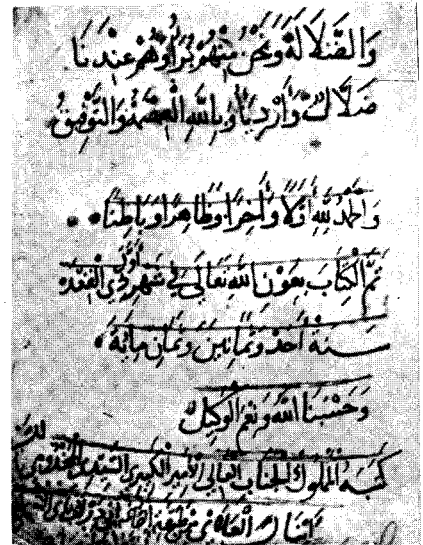 وَالضَّلَالَةَ وَنَحْنُ مِنْهُمْ بَرَاءٌ وَهُمْ عِنْدَنَا
ضُلَّالٌ وَأَرْدِيَاءُ وَبِاللَّهِ الْعِصْمَةُ وَالتَّوْفِيقُ
وَالْحَمْدُ لِلَّهِ أَوَّلًا وَآخِرًا وَظَاهِرًا وَبَاطِنًا
تَمَّ الْكِتَابُ بِعَوْنِ اللَّهِ تَعَالَى فِي أَوَّلِ شَهْرِ ذِي الْقَعْدَة
سنة أحد وثمانين وثمان مائة
وَحَسْبُنَا اللَّهُ وَنِعْمَ الْوَكِيلُ
كتبه المملوك الجناب العالي الأمير الكبيري السيدي المخدومي
العلائي من طبقة